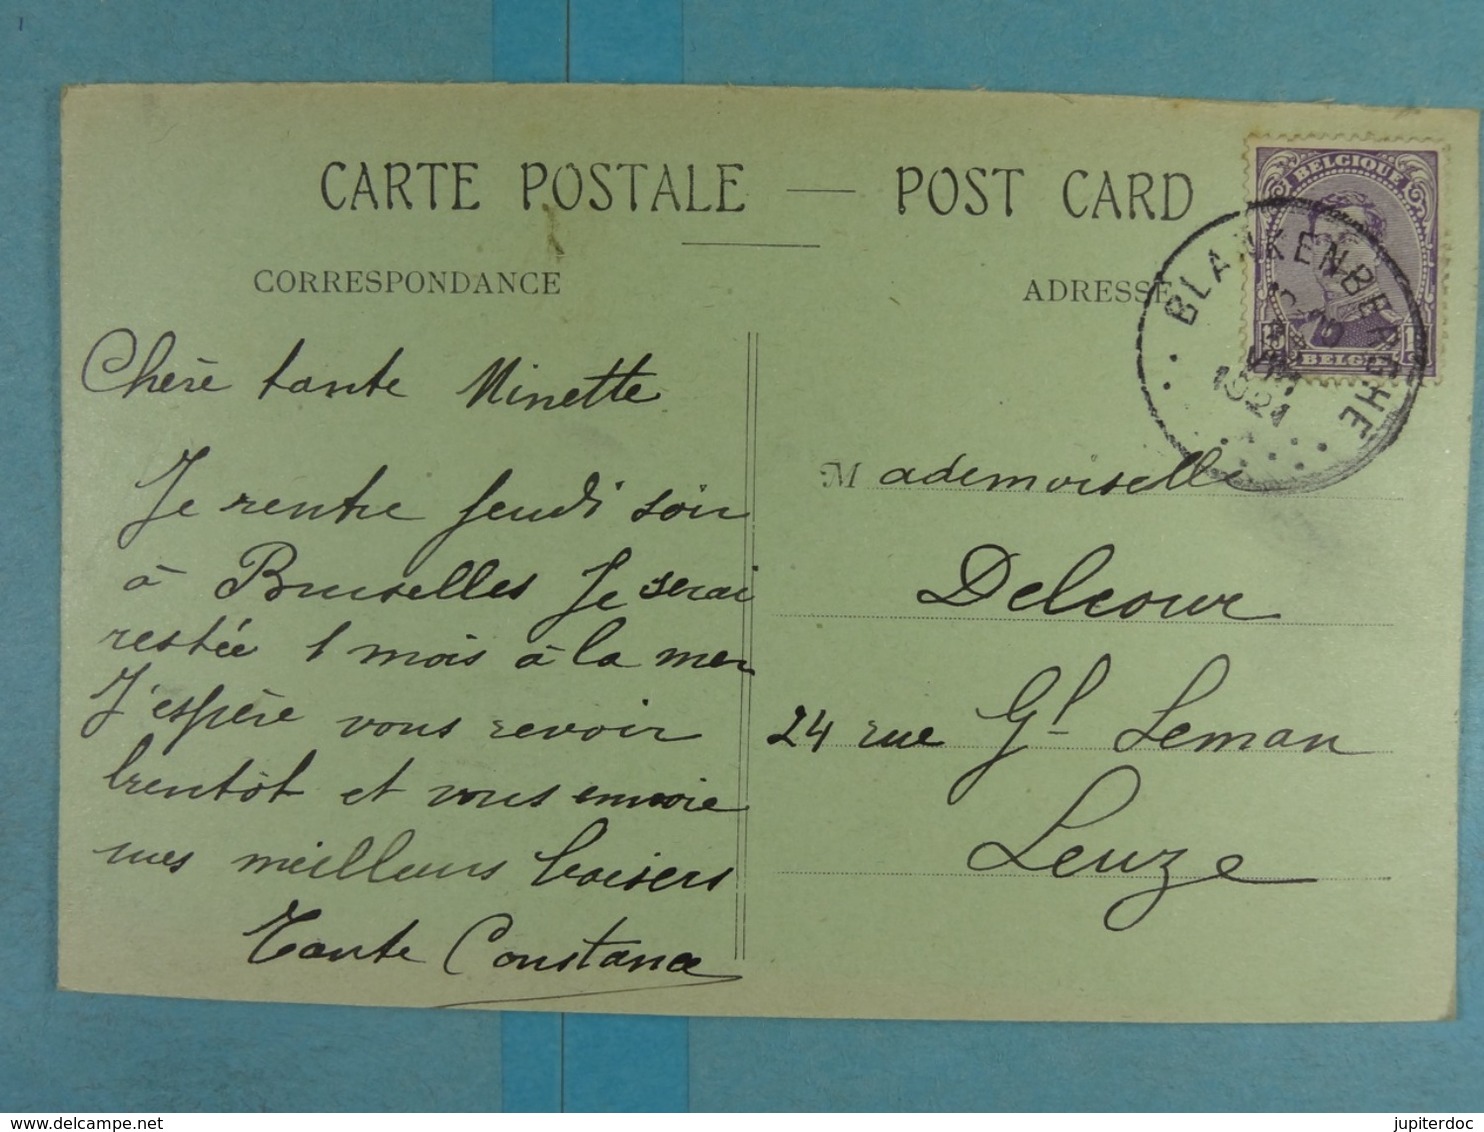 CARTE POSTALE — POST CARD
CORRESPONDANCE
ADRESSE
BELGIQUE
15 1c
BELGIE
BLANKENBERGHE
VIII
1921
Chère tante Minette
Je rentre Jeudi soir
à Bruxelles Je serai
restée 1 mois à la mer
J'espère vous revoir
bientôt et vous envoie
mes meilleurs baisers
Tante Constance
Mademoiselle
Delcour
24 rue Gl Leman
Leuze
delcampe.net
jupiterdoc